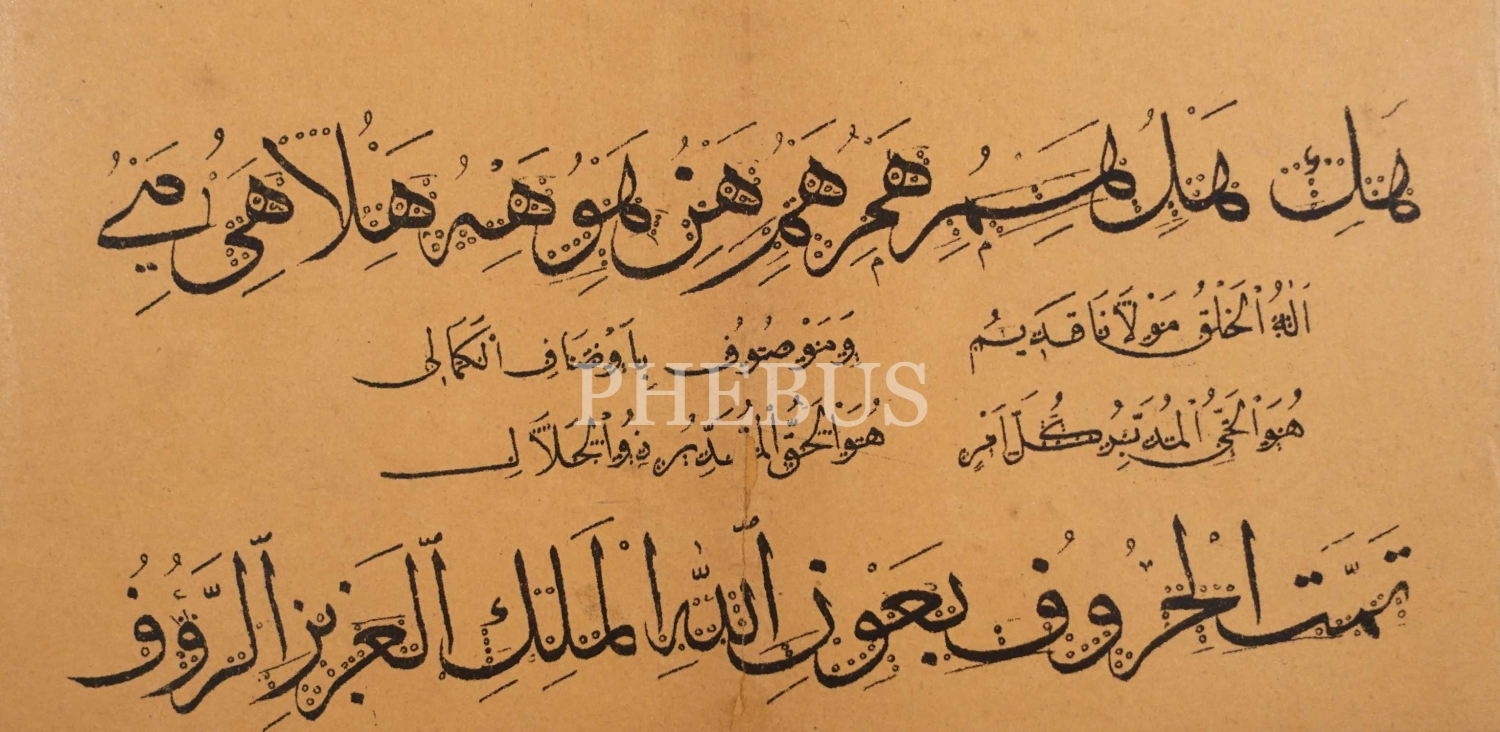 هك هل هم هم هم هن هو هه هلا هى
اله الخلق مولانا قديم وموصوف باوصاف الكمالى
هو الحي المدبر كل امر هو الحق المقدر ذو الجلال
PHEBUS
تمت الحروف بعون الله الملك العزيز الرؤف